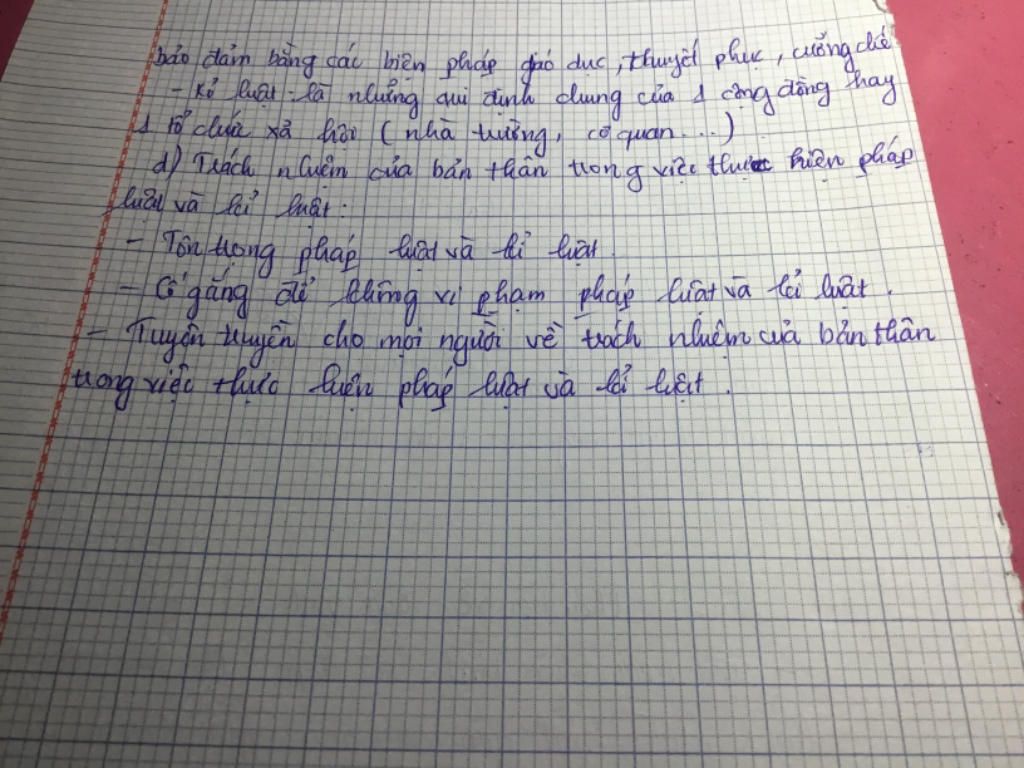 bảo đảm bằng các biện pháp giáo dục, thuyết phục, cưỡng chế
- Kỉ luật: là những qui định chung của 1 cộng đồng hay
1 tổ chức xã hội (nhà trường, cơ quan...)
d) Trách nhiệm của bản thân trong việc thực hiện pháp
luật và kỉ luật:
- Tôn trọng pháp luật và kỉ luật
- Cố gắng để không vi phạm pháp luật và kỉ luật.
- Tuyên truyền cho mọi người về trách nhiệm của bản thân
trong việc thực hiện pháp luật và kỉ luật.